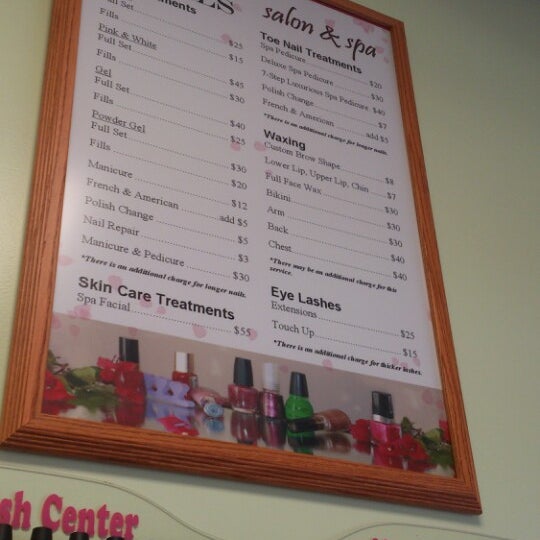 salon & spa
Full Set $25
Fills $15
Pink & White
Full Set $45
Fills $30
Gel
Full Set $40
Fills $25
Powder Gel
Full Set $30
Fills $20
Manicure $12
French & American add $5
Polish Change $5
Nail Repair $3
Manicure & Pedicure $30
*There is an additional charge for longer nails.
Skin Care Treatments
Spa Facial $55
Toe Nail Treatments
Spa Pedicure $20
Deluxe Spa Pedicure $30
7-Step Luxurious Spa Pedicure $40
Polish Change $7
French & American add $5
*There is an additional charge for longer nails.
Waxing
Custom Brow Shape $8
Lower Lip, Upper Lip, Chin $7
Full Face Wax $30
Bikini $30
Arm $30
Back $40
Chest $40
*There may be an additional charge for this
service.
Eye Lashes
Extensions $25
Touch Up $15
*There is an additional charge for thicker lashes.
sh Center